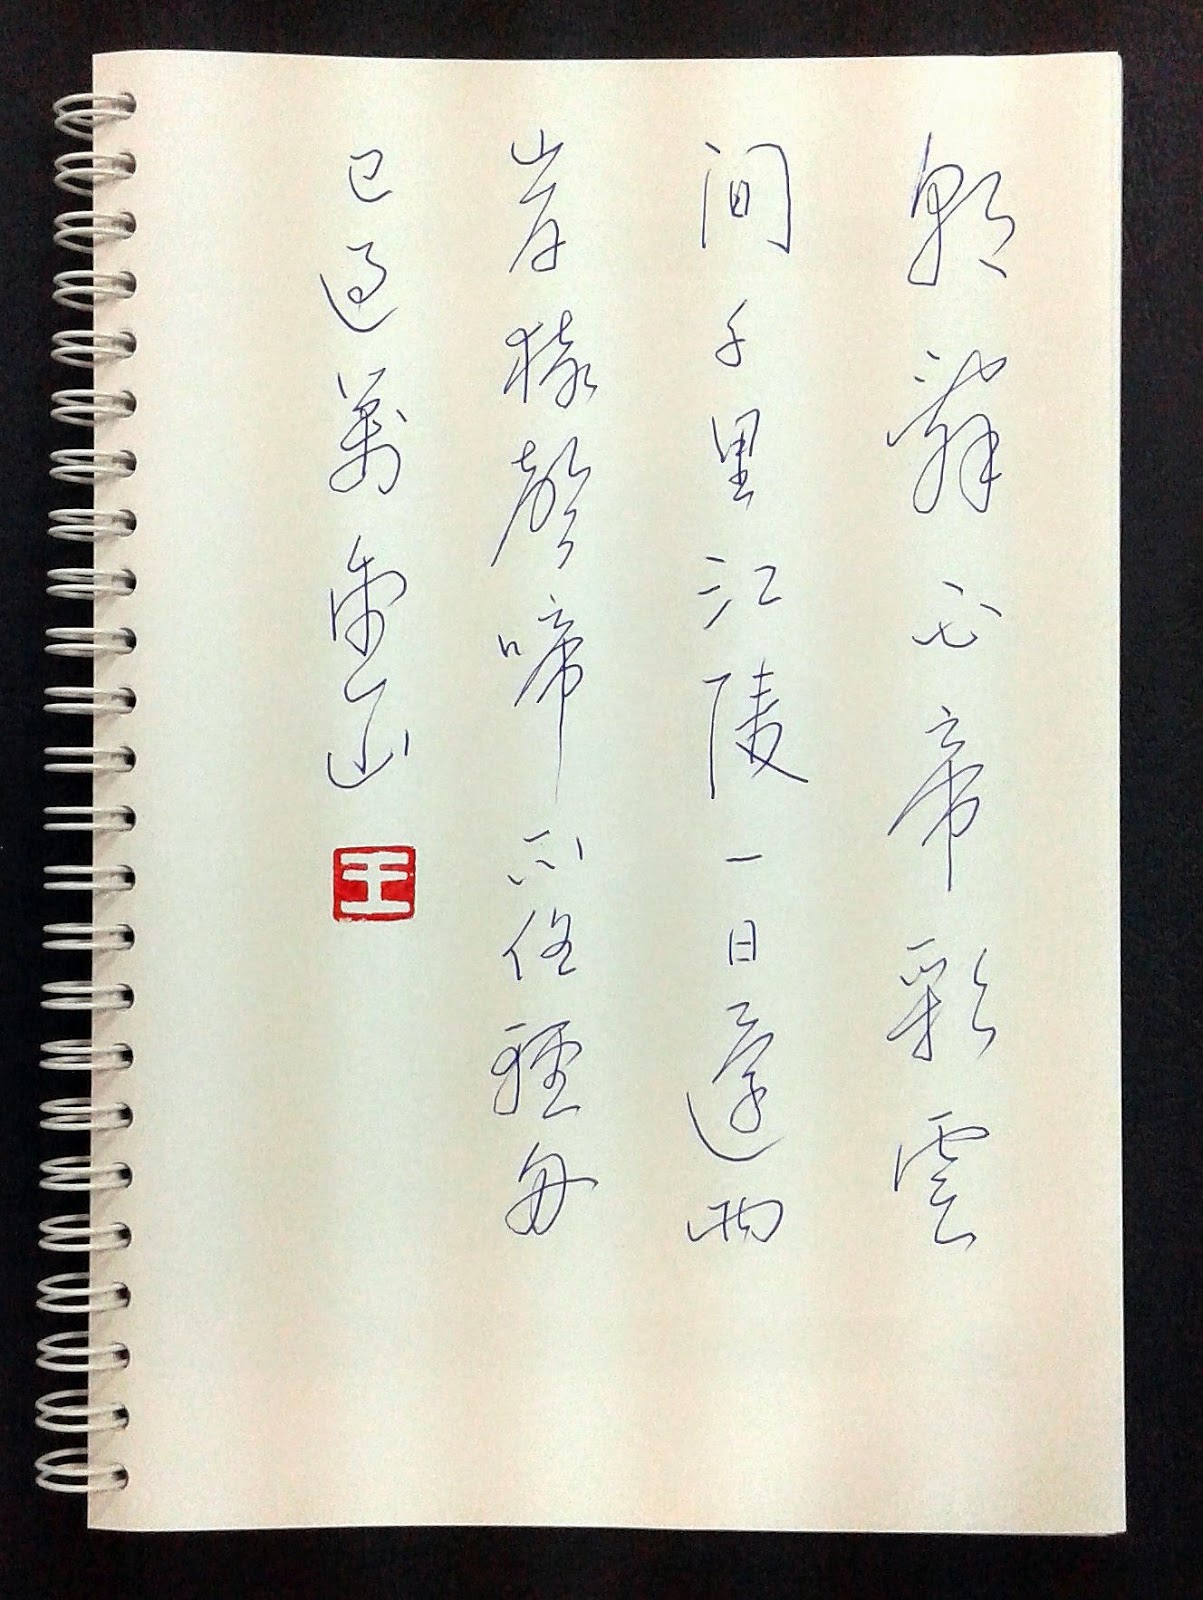 朝辭白帝彩雲
間千里江陵一日還兩
岸猿聲啼不住輕舟
已過萬重山
王